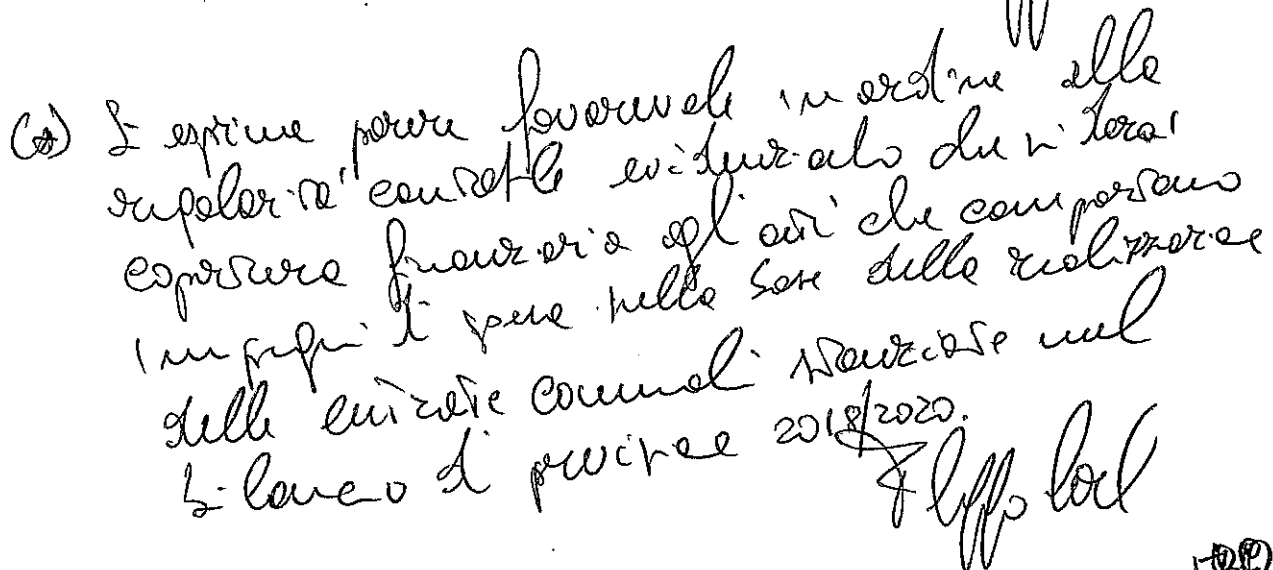 (*) Si esprime parere favorevole in ordine alla
regolarità contabile evidenziato che si darà
copertura finanziaria agli atti che comportano
impegni di spesa sulla base della realizzazione
delle entrate comunali stanziate nel
bilancio di previsione 2018/2020.